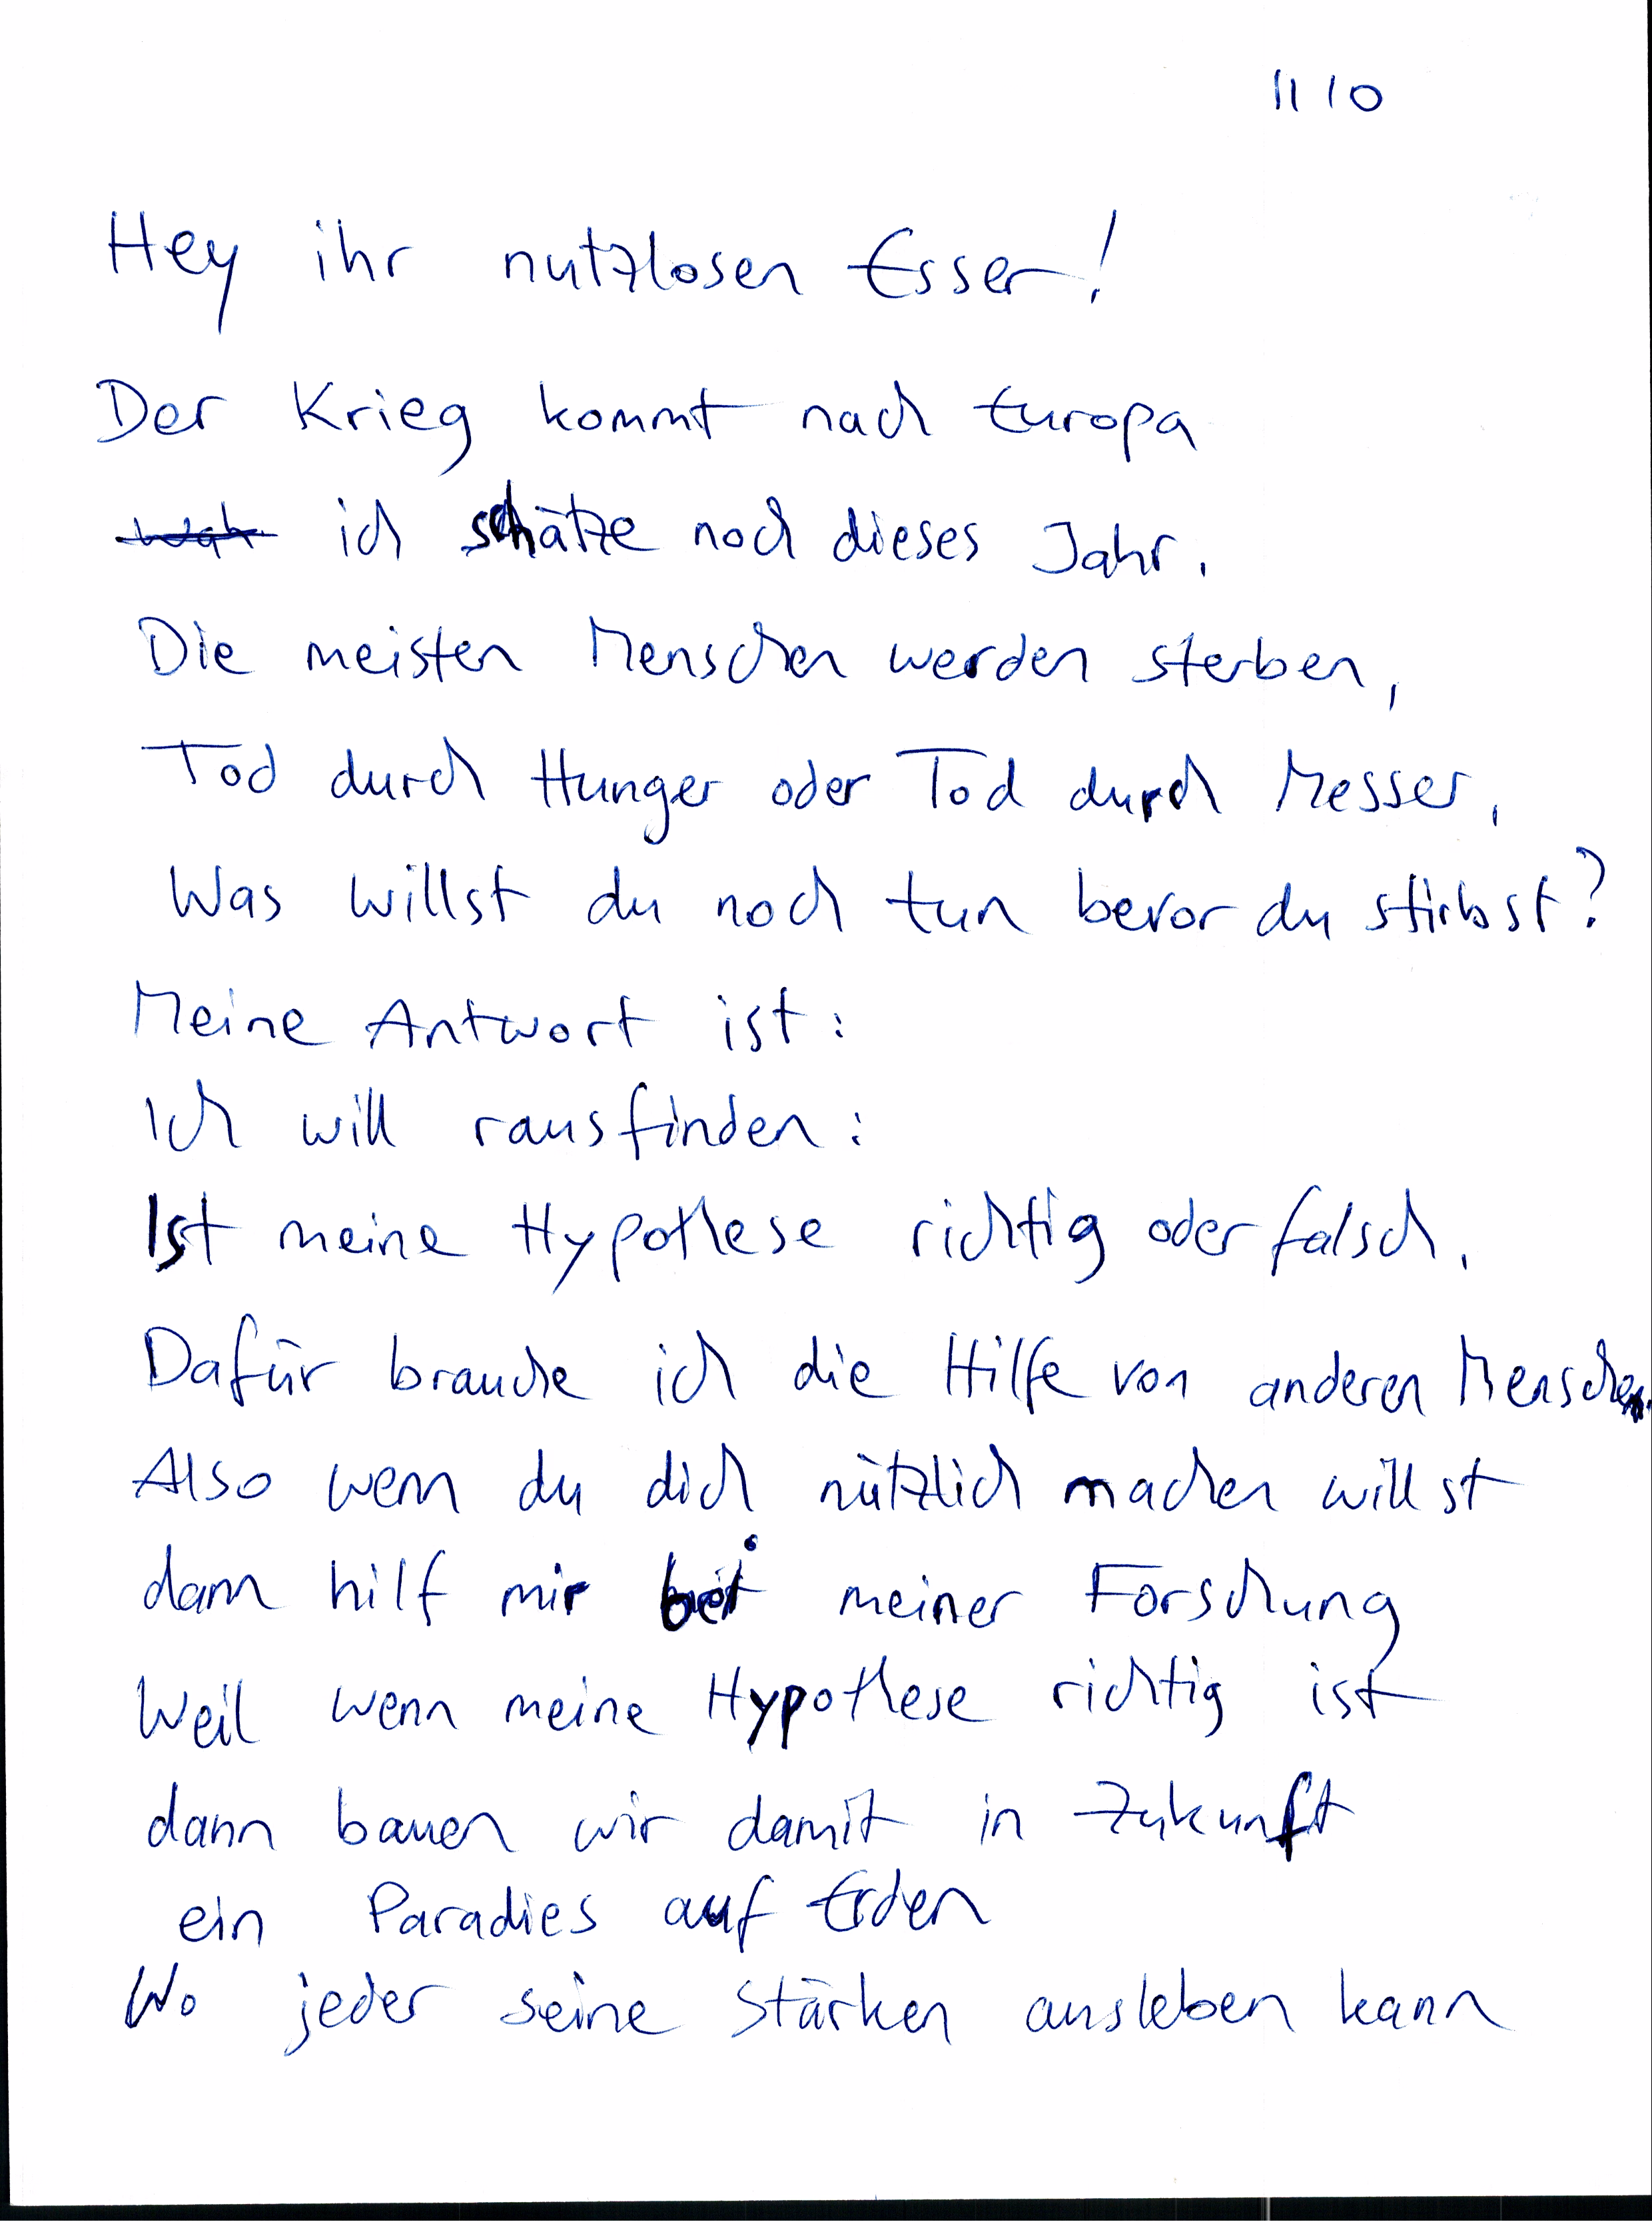 11 10
Hey ihr nutzlosen Esser!
Der Krieg kommt nach Europa
ich schätze noch dieses Jahr.
Die meisten Menschen werden sterben,
Tod durch Hunger oder Tod durch Messer,
Was willst du noch tun bevor du stirbst?
Meine Antwort ist:
Ich will rausfinden:
Ist meine Hypothese richtig oder falsch.
Dafür brauche ich die Hilfe von anderen Menschen.
Also wenn du dich nützlich machen willst
dann hilf mir bei meiner Forschung
Weil wenn meine Hypothese richtig ist
dann bauen wir damit in Zukunft
ein Paradies auf Erden
Wo jeder seine Stärken ausleben kann